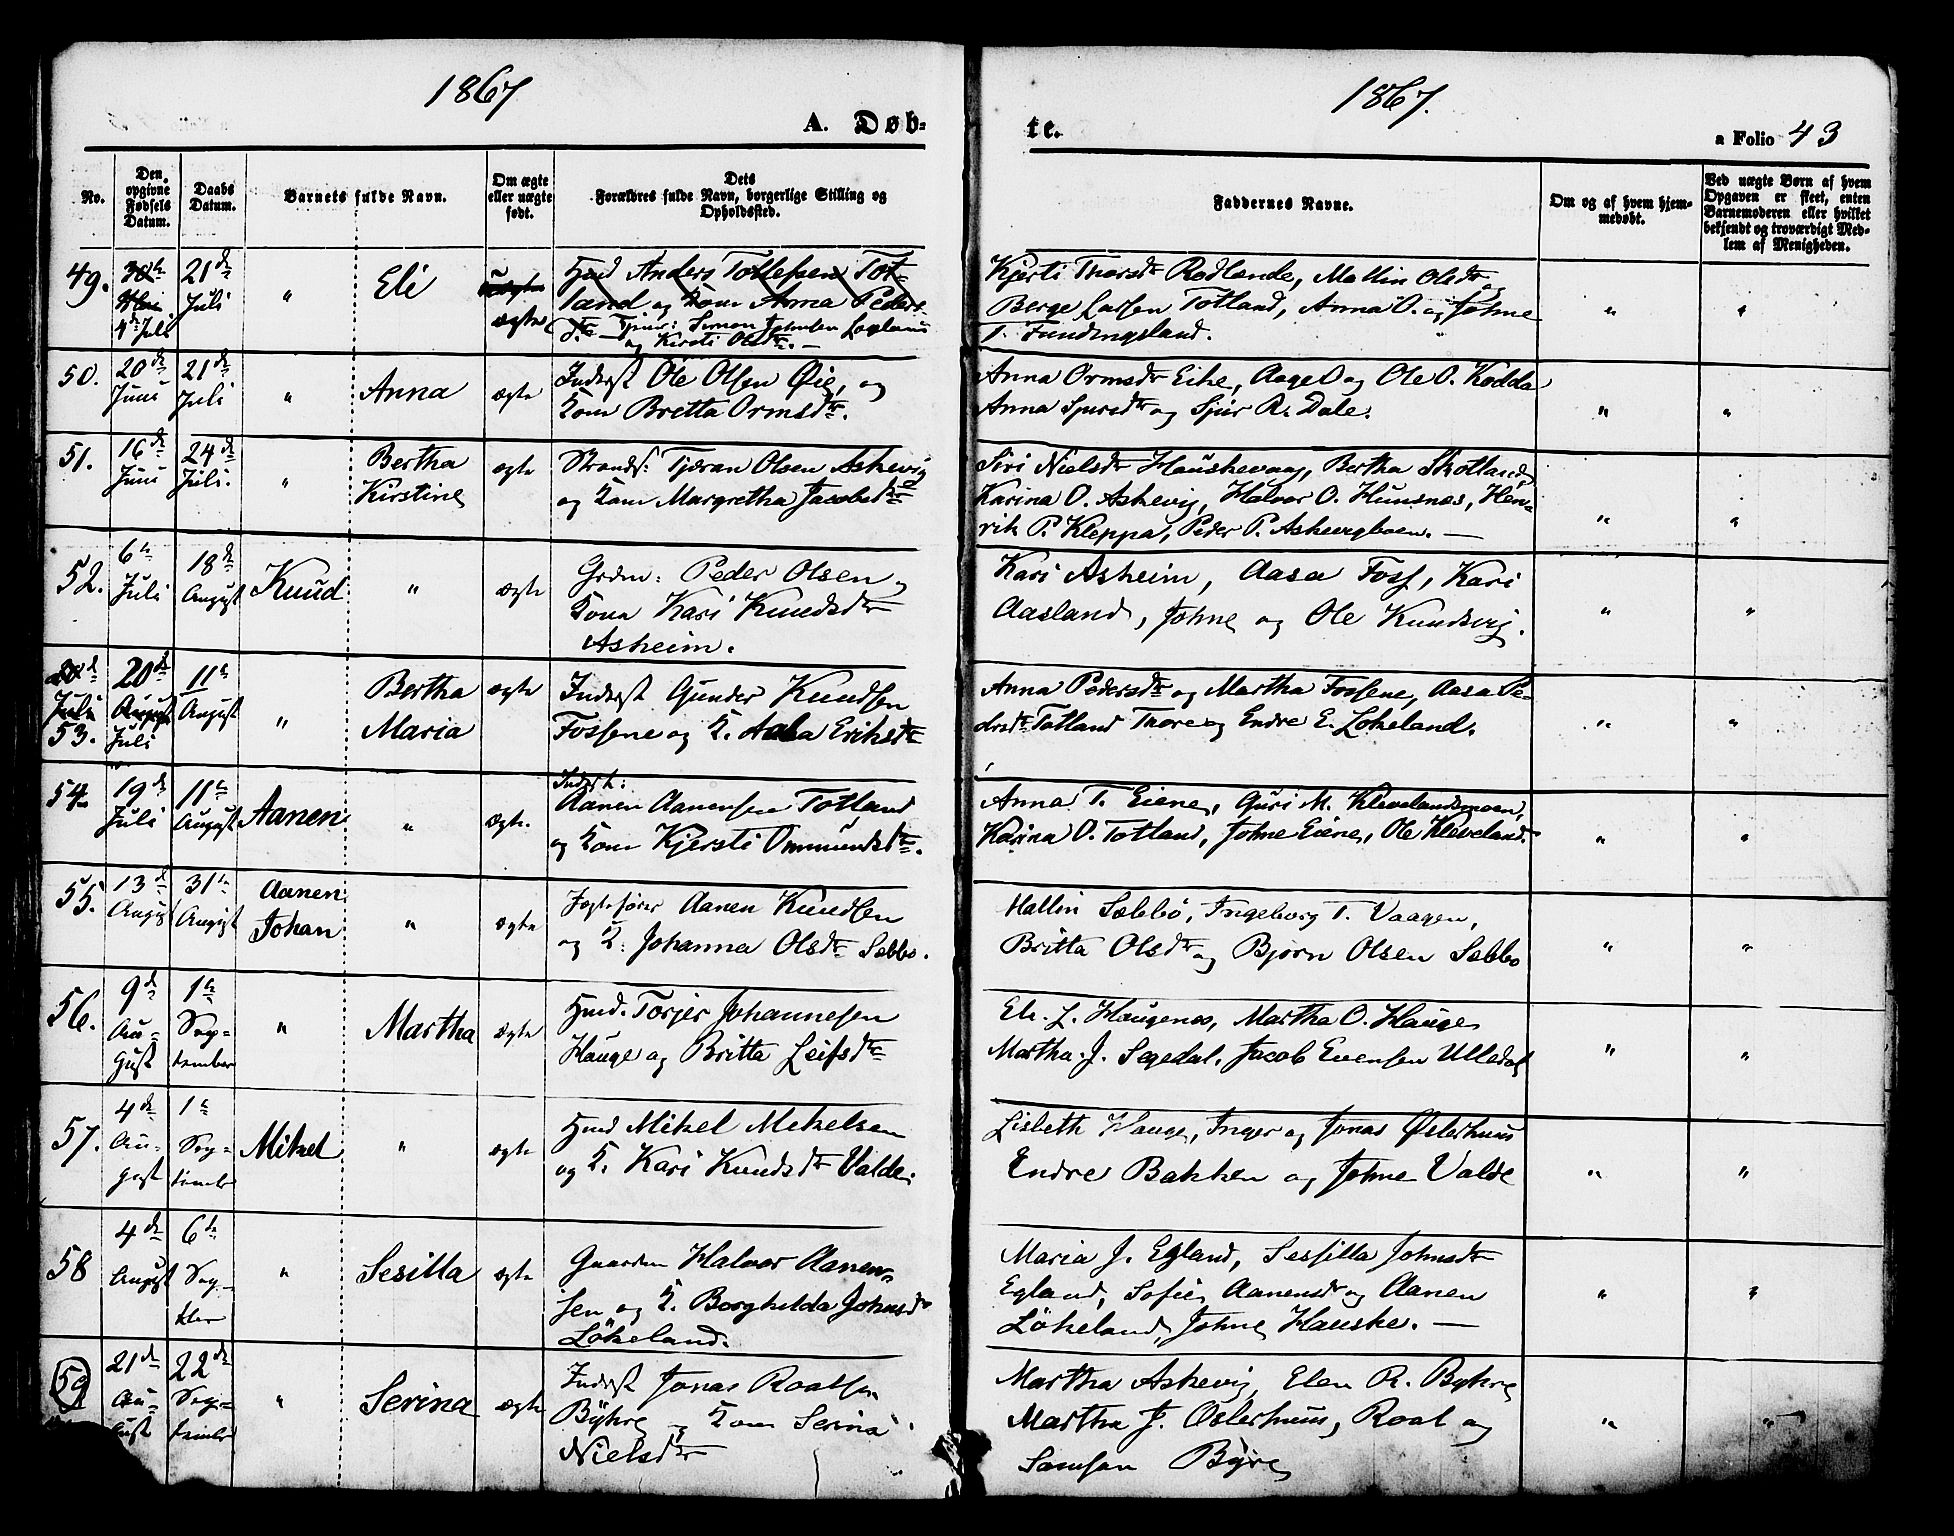 1867
1867.
A. Døb-
te.
a Folio 43
No.
Den opgivne Fødsels Datum.
Daabs Datum.
Barnets fulde Navn.
Om ægte eller uægte født.
Dets
Forældres fulde Navn, borgerlige Stilling og
Opholdssted.
Faddernes Navne.
Om og af hvem hjem-
medøbt.
Ved uægte Børn af hvem
Opgaven er skeet, enten
Barnemoderen eller hvilket
bekjendt og troværdigt Med-
lem af Menigheden.
49. 4de Juli 21de Juli " Eli uægte
Anders Tollefsen Tot-
land og Kone Anna Peders-
dtr Simon Johnsen
og Kirsti Olsdtr. —
Kjersti Thorsdtr Rodlende, Mallin Olsdtr og
Berge Larsen Totland, Anna O. og Johne
T. Fundingsland. " "
50. 20de Juni 21de Juli " Anna ægte
Inderst Ole Olsen Øie, og
Kone Britta Ormsdtr.
Anna Ormsdtr Eike, Aage O og Ole O. Kodda
Anna Sjursdtr og Sjur R. Dale. " "
51. 16de Juni 24de Juli. " Bertha Kirstine ægte
Strands: Tjeran Olsen Askevig
og Kone Margretha Jacobsdtr
Siri Nielsdtr Hauskevaag, Bertha Skotland
Karina O. Askevig, Halvor O. Hunsnes, Hen-
rik P. Kleppa, Peder P. Askevigboen. — " "
52. 6te Juli 18de August Knud " ægte
Grdm: Peder Olsen,
Kone Kari Knudsdtr
Asheim.
Kari Asheim, Aasa Foss, Kari
Aasland, Johne og Ole Knudsvig. " "
53. 20de August Juli 11te August " Bertha Maria ægte
Inderst Gunder Knudsen
Fossene og K. Aasa Eriksdtr
Anna Pedersdtr og Martha Fossene, Aasa Pe-
dersdtr Totland Thore og Endre E. Lokeland. " "
54 19de Juli 11te August Aanen " ægte.
Inderst:
Aanen Aanensen Totland
og Kone Kjersti Ommundsdtr.
Anna T. Eiene, Guri M. Klevelandsmoen,
Karina O. Totland, Johne Eiene, Ole Kleveland. " "
55. 13de August 31te August Aanen Johan " ægte
Jegtefører Aanen Knudsen
og K: Johanna Olsdtr Sæbbø.
Mallin Sæbbø, Ingeborg T. Vaagen,
Britta Olsdtr og Bjørn Olsen Sæbbø " "
56. 9de August 1te September " Martha ægte
Hmd. Torjer Johannesen
Hauge og Britta Leifsdtr
Eli. L. Haugenes, Martha O. Hauge
Martha J. Segedal, Jacob Evensen Ulledal " "
57. 4de August 1te September Mikel " ægte
Hmd Mikel Mikelsen
og K. Kari Knudsdtr Valde.
Lisbeth Hauge, Inger og Jonas Østerhuus
Endre Bakken og Johne Valde " "
58 4de August 6te September " Sesilla ægte
Gaardm Halvor Aanen-
sen og K. Borghilda Johnsdtr
Løkeland.
Maria J. Egland, Sessilla Johnsdtr
Egland, Sofie Aanensdtr og Aanen
Løkeland, Johne Hauske. — " "
59 21de August 22de September " Serina ægte
Inderst Jonas Roalsen
Byhre og Kone Serina
Nielsdtr
Martha Askevig, Elen R. Byhre
Martha J. Osterhuus, Roal og
Samson Byre " "